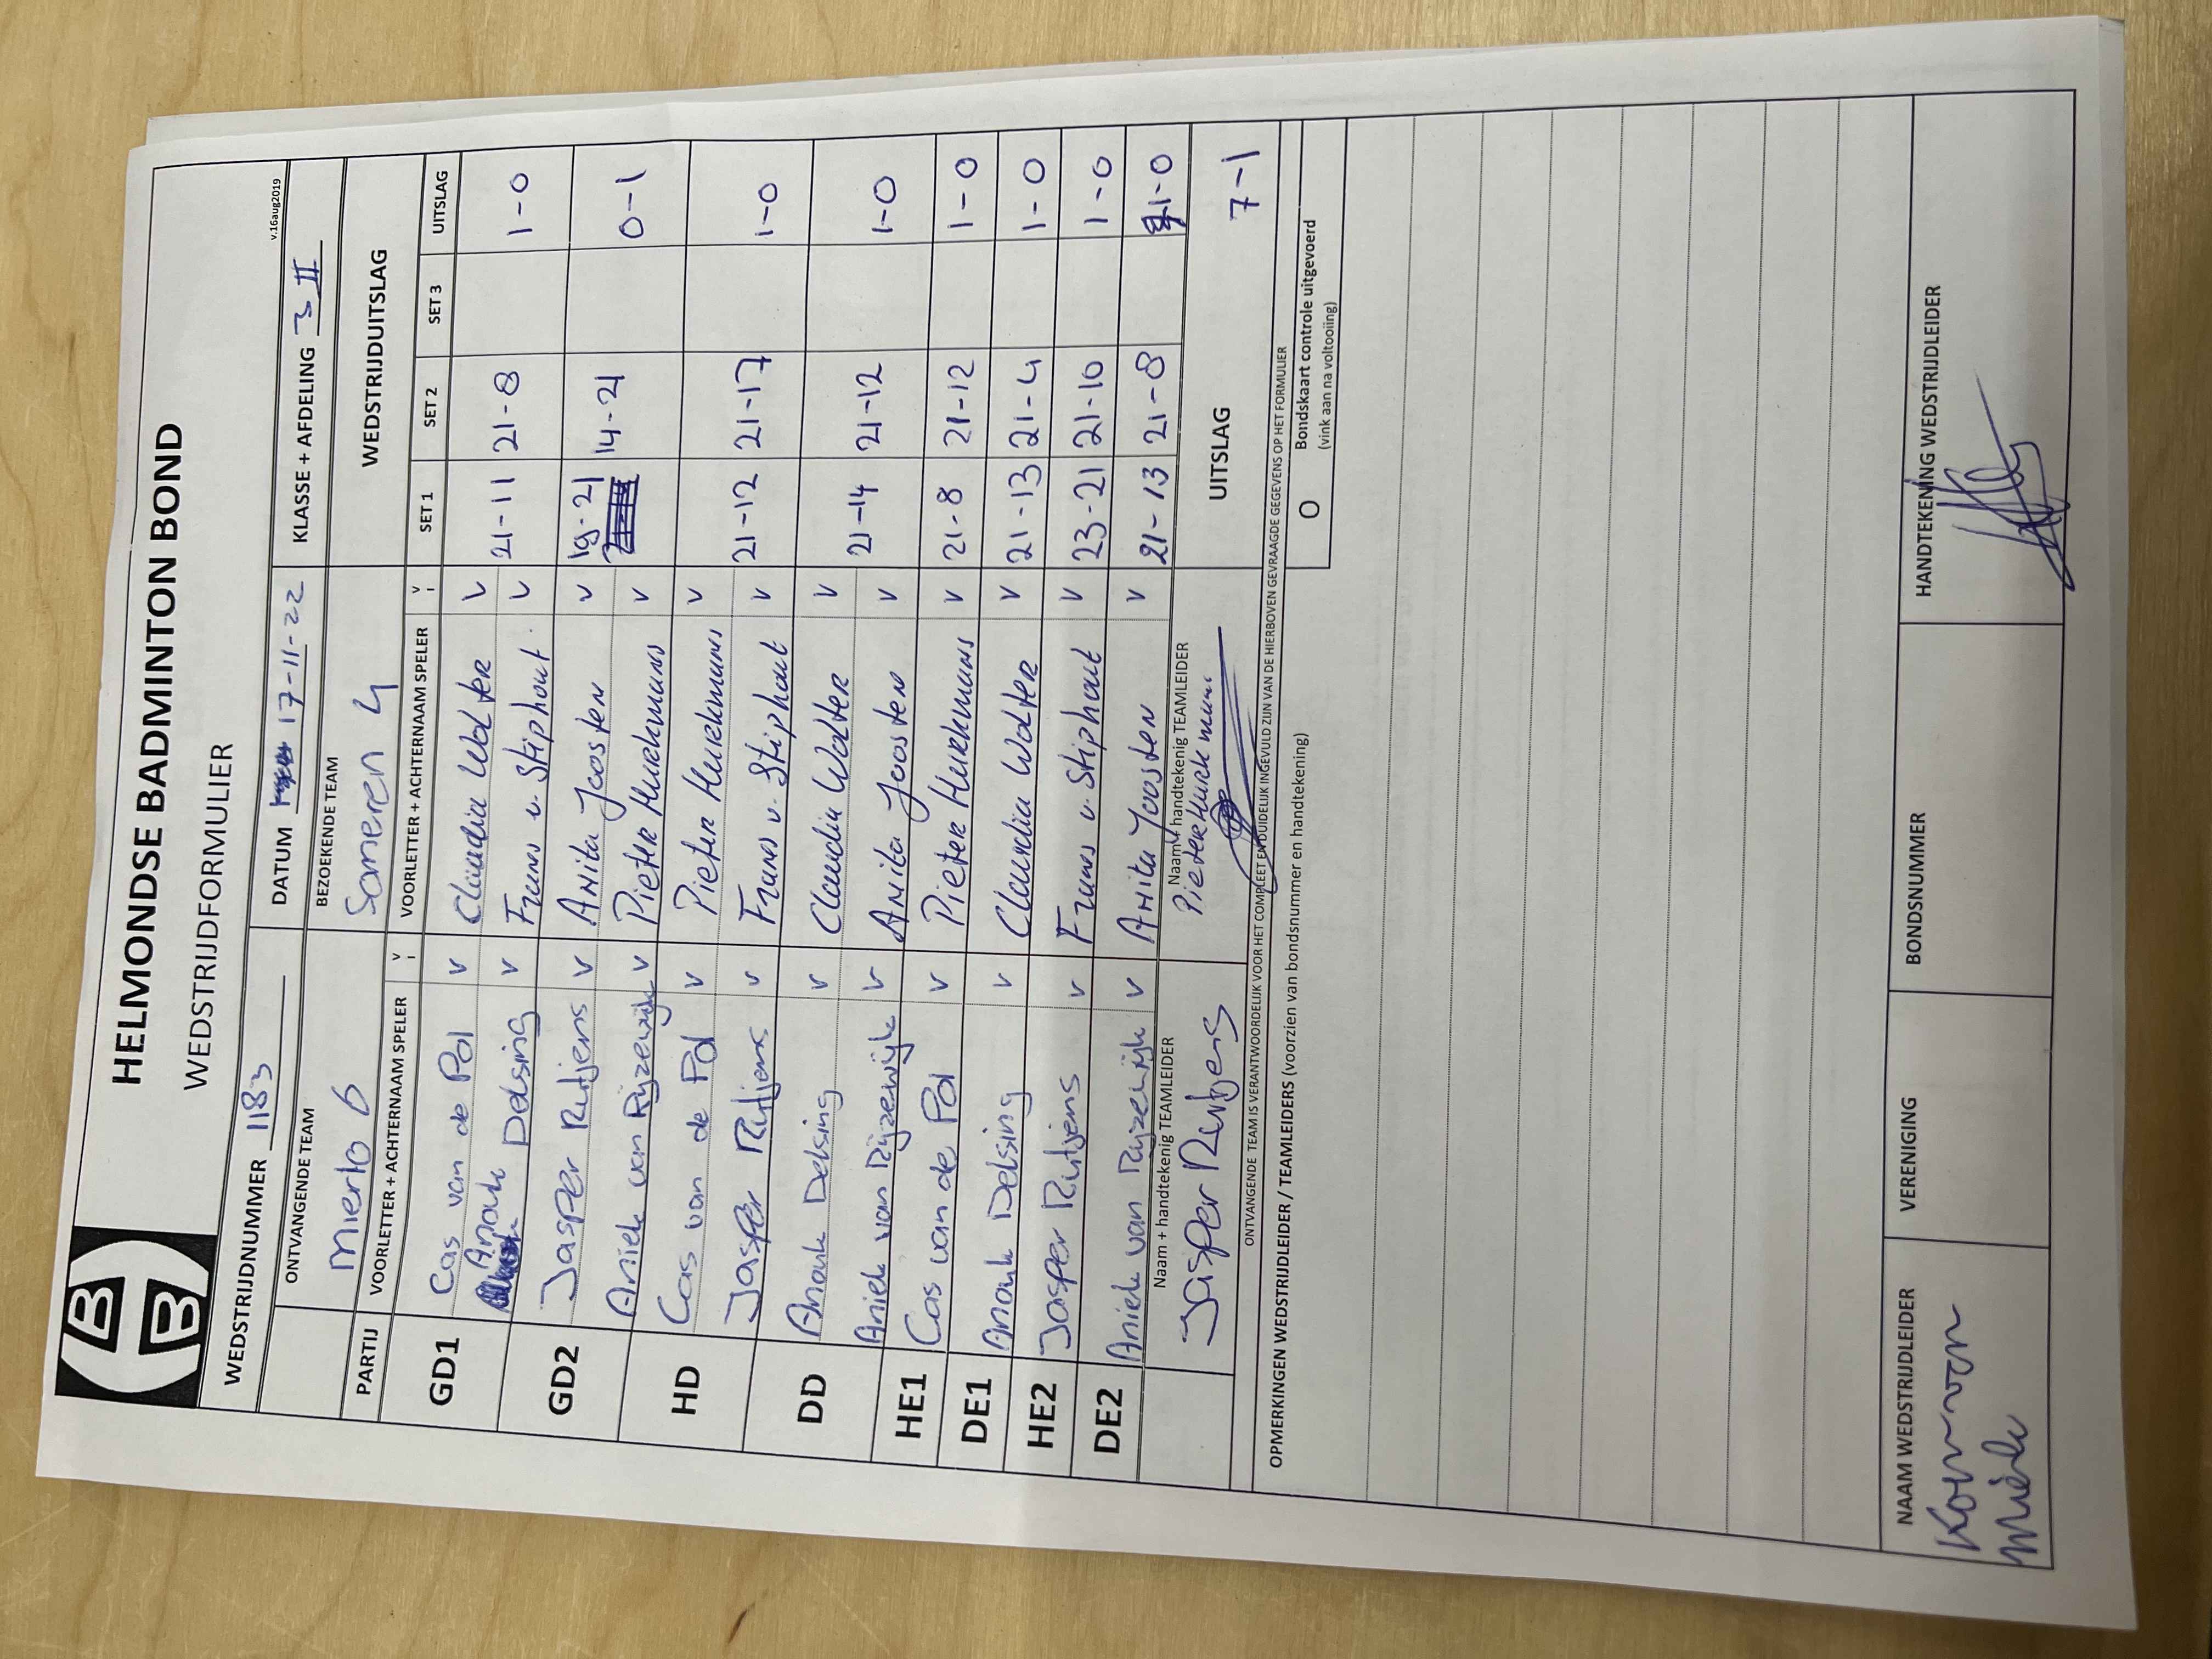 HELMONDSE BADMINTON BOND
WEDSTRIJDFORMULIER
v.16aug2019
WEDSTRIJDNUMMER 1183 DATUM 17-11-22 KLASSE + AFDELING 3 II
ONTVANGENDE TEAM BEZOEKENDE TEAM WEDSTRIJDUITSLAG
Mierlo 6 Someren 4
PARTIJ VOORLETTER + ACHTERNAAM SPELER V I VOORLETTER + ACHTERNAAM SPELER V I SET 1 SET 2 SET 3 UITSLAG
GD1 Cas van de Pol v Claudia Wolter v
Anouk Delsing v Frans v. Stiphout v 21-11 21-8 1-0
GD2 Jasper Rutjens v Anita Joosten v 19-21 14-21 0-1
Aniek van Rijzewijk v Pieter Hurkmans v
HD Cas van de Pol v Pieter Hurkmans v
Jasper Rutjens v Frans v. Stiphout v 21-12 21-17 1-0
DD Anouk Delsing v Claudia Wolter v
Aniek van Rijzewijk v Anita Joosten v 21-14 21-12 1-0
HE1 Cas van de Pol v Pieter Hurkmans v 21-8 21-12 1-0
DE1 Anouk Delsing v Claudia Wolter v 21-13 21-4 1-0
HE2 Jasper Rutjens v Frans v. Stiphout v 23-21 21-10 1-0
DE2 Aniek van Rijzewijk v Anita Joosten v 21-13 21-8 1-0
Naam + handtekenig TEAMLEIDER Naam + handtekenig TEAMLEIDER UITSLAG 7-1
Jasper Rutjens Pieter Hurkmans
ONTVANGENDE TEAM IS VERANTWOORDELIJK VOOR HET COMPLEET EN DUIDELIJK INGEVULD ZIJN VAN DE HIERBOVEN GEVRAAGDE GEGEVENS OP HET FORMULIER
OPMERKINGEN WEDSTRIJDLEIDER / TEAMLEIDERS (voorzien van bondsnummer en handtekening)
O Bondskaart controle uitgevoerd
(vink aan na voltooiing)
NAAM WEDSTRIJDLEIDER VERENIGING BONDSNUMMER HANDTEKENING WEDSTRIJDLEIDER